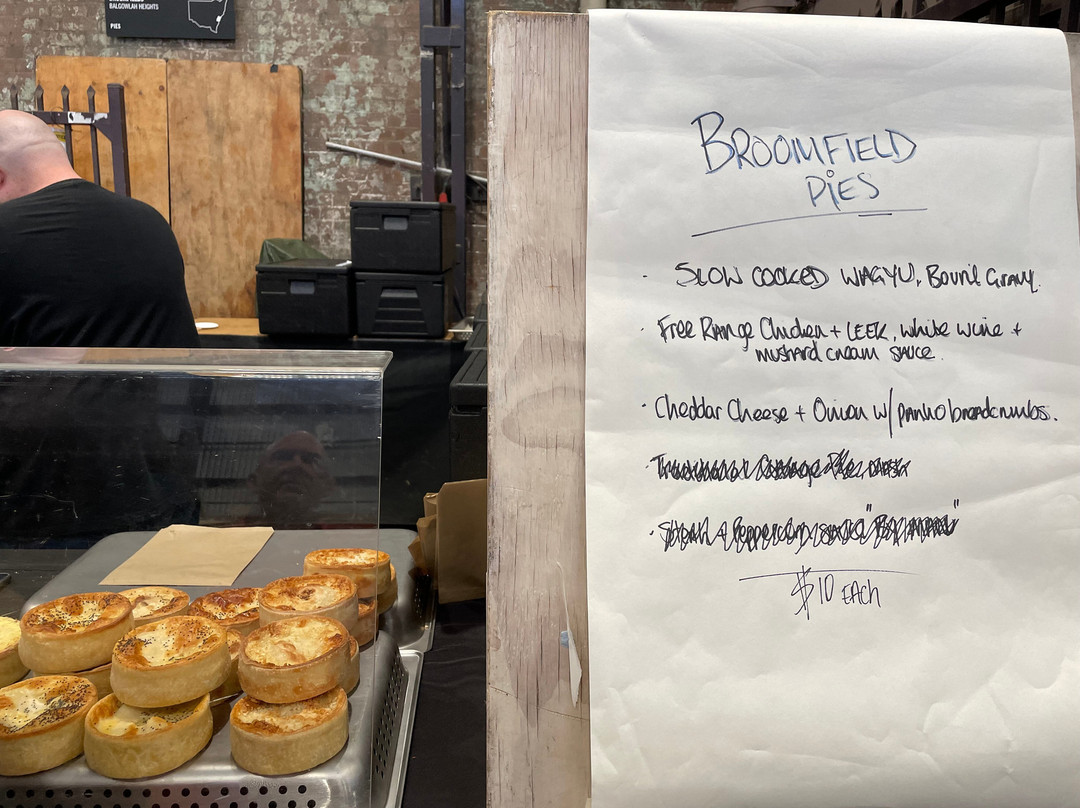 BALGOWLAH HEIGHTS
PIES
BROOMFIELD
PIES
· SLOW COOKED WAGYU, Bovril Gravy.
· Free Range Chicken + LEEK, white wine +
mustard cream sauce.
· Cheddar Cheese + Onion w/ panko breadcrumbs.
$10 EACH